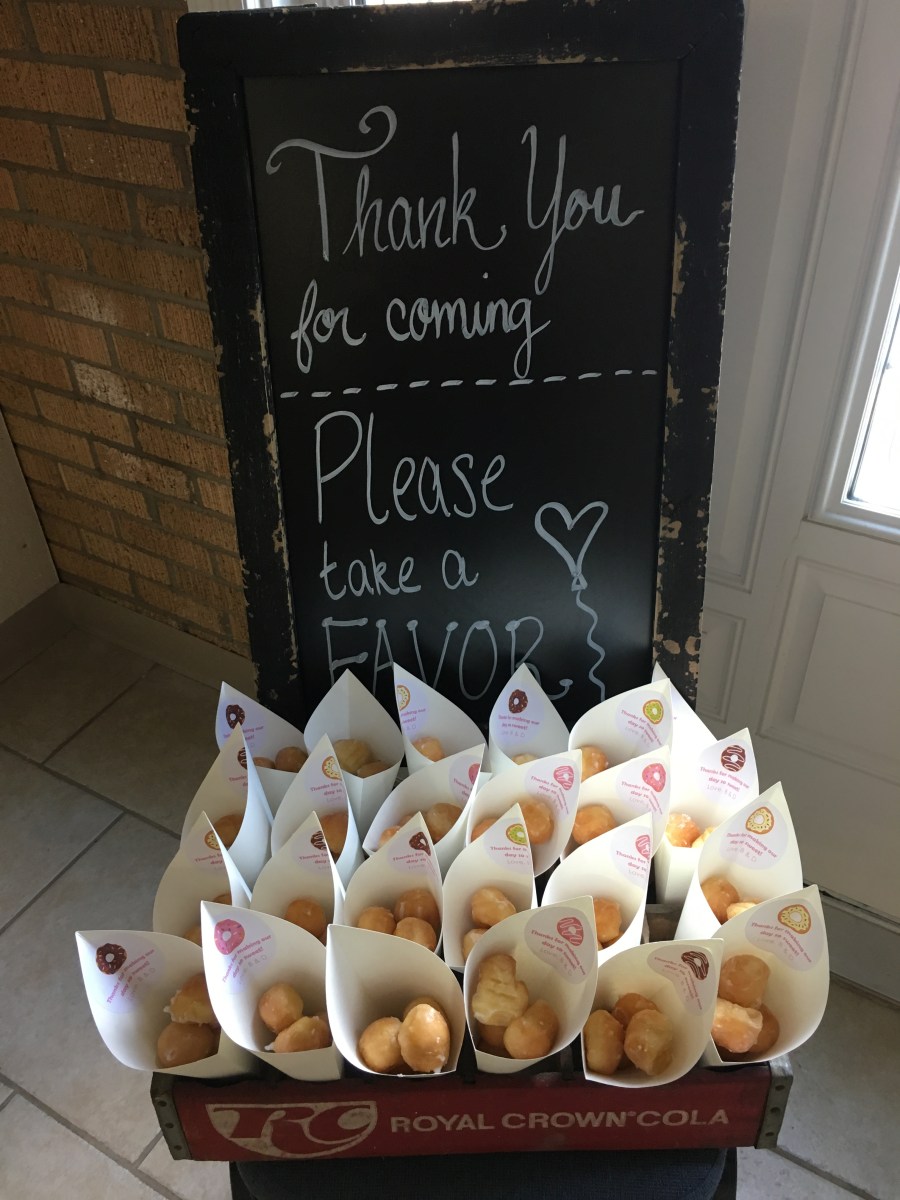 Thank You
for coming
Please
take a
FAVOR
Thanks for making our
day so sweet!
RC
ROYAL CROWN COLA